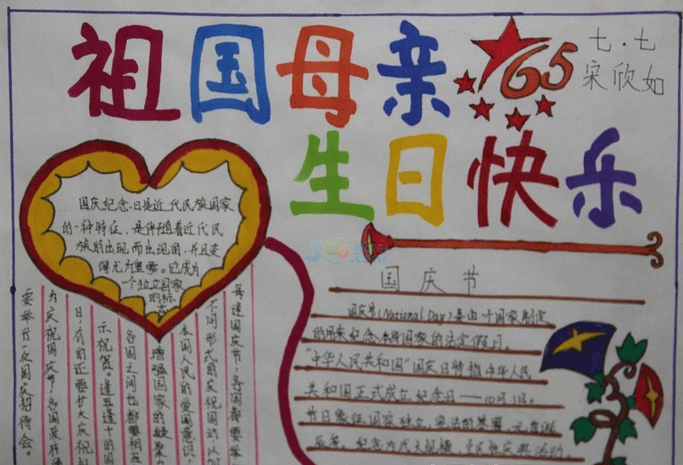 祖国母亲
65
七.七
宋欣如
生日快乐
国庆纪念日是近代民族国家
的一种特征，是伴随着近代民
族的出现而出现的，并且变
得尤为重要。它成为
一个独立国家
的标
志
国庆节
国庆节(National Day)是由一个国家制定
的用来纪念本身国家的法定假日
"中华人民共和国"国庆日特指中华人民
共和国正式成立纪念日——10月1日。
节日象征国家独立，宪法的签署，元首诞
纪念方式大规模，全民性庆典活动
每逢国庆节，各国都要举
不同形式的庆祝活动，以加
本国人民的爱国意识，
增强国家的凝聚力
各国之间也都要相互
示祝贺。逢五逢十的国
日，有的还要扩大庆祝
为庆祝国庆节，各国政府通
要举行一次国庆招待会。